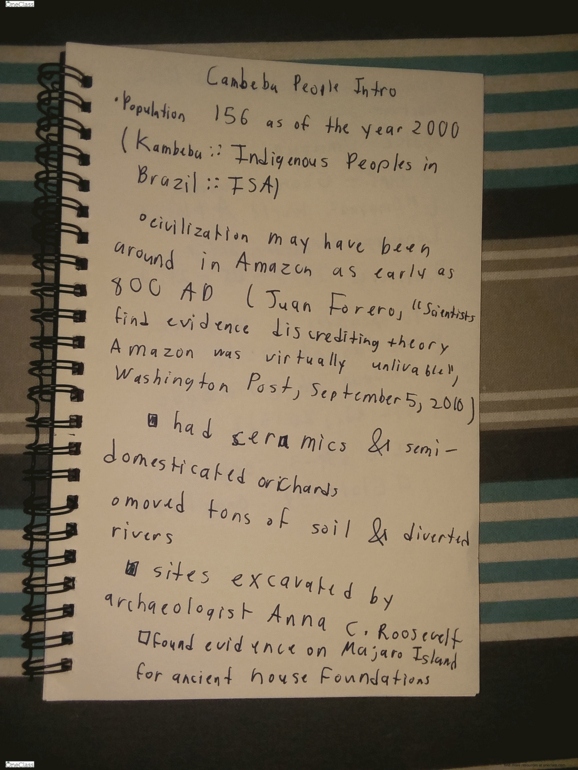 OneClass
Cambeba People Intro
• Population 156 as of the year 2000
(Kambeba :: Indigenous Peoples in
Brazil :: ISA)
◦civilization may have been
around in Amazon as early as
800 AD (Juan Forero, "Scientists
find evidence discrediting theory
Amazon was virtually unlivable",
Washington Post, September 5, 2010)
▪ had ceramics & semi-
domesticated orichards
◦moved tons of soil & diverted
rivers
▪ sites excavated by
archaeologist Anna C. Roosevelt
□found evidence on Majaro Island
for ancient house foundations
OneClass